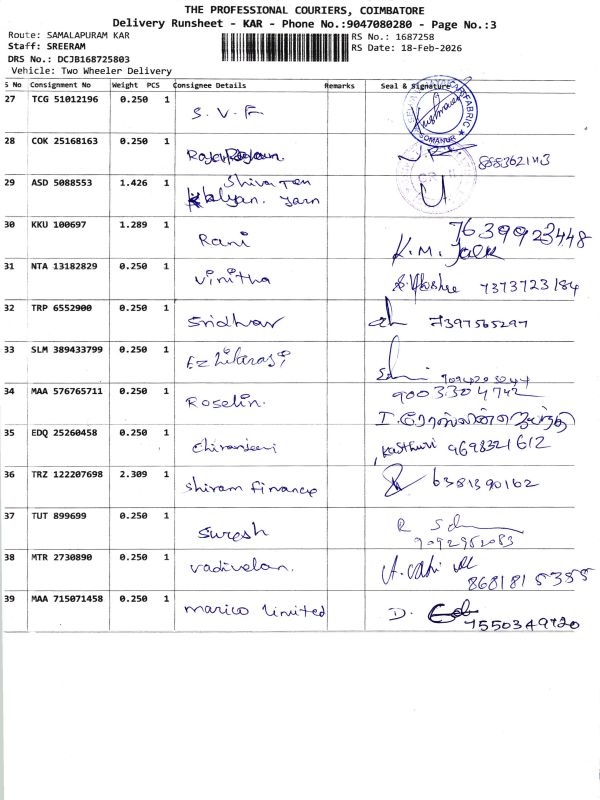 THE PROFESSIONAL COURIERS, COIMBATORE
Delivery Runsheet - KAR - Phone No.:9047080280 - Page No.:3
Route: SAMALAPURAM KAR RS No.: 1687258
Staff: SREERAM RS Date: 18-Feb-2026
DRS No.: DCJB168725803
Vehicle: Two Wheeler Delivery
S No Consignment No Weight PCS Consignee Details Remarks Seal & Signature
27 TCG 51012196 0.250 1 S.V.F
28 COK 25168163 0.250 1
29 ASD 5088553 1.426 1 Shiva Ten
Kalyan. Yarn
30 KKU 100697 1.289 1 Rani 7639923448
K.M.
31 NTA 13182829 0.250 1 Vinitha 7373723184
32 TRP 6552900 0.250 1 Sridhar 7397565297
33 SLM 389433799 0.250 1 Ezhilarasi
34 MAA 576765711 0.250 1 Roselin. 9003304742
35 EDQ 25260458 0.250 1 Chiranjeevi Kasthuri 9698321612
36 TRZ 122207698 2.309 1 Shiram finance 6381390162
37 TUT 899699 0.250 1 Suresh R
9092952083
38 MTR 2730890 0.250 1 Vadivelan.
8681815355
39 MAA 715071458 0.250 1 Marico Limited D.
7550349720